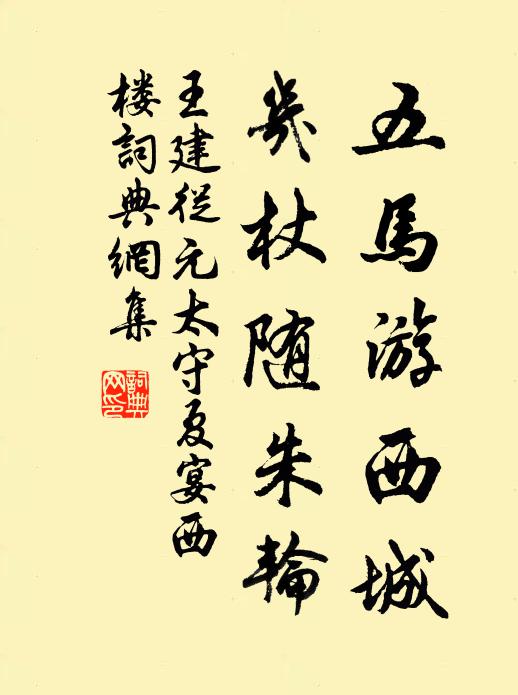 五馬游西城
幾杖随朱輪
王建從元太守夏宴西
楼詞典網集
詞典網印